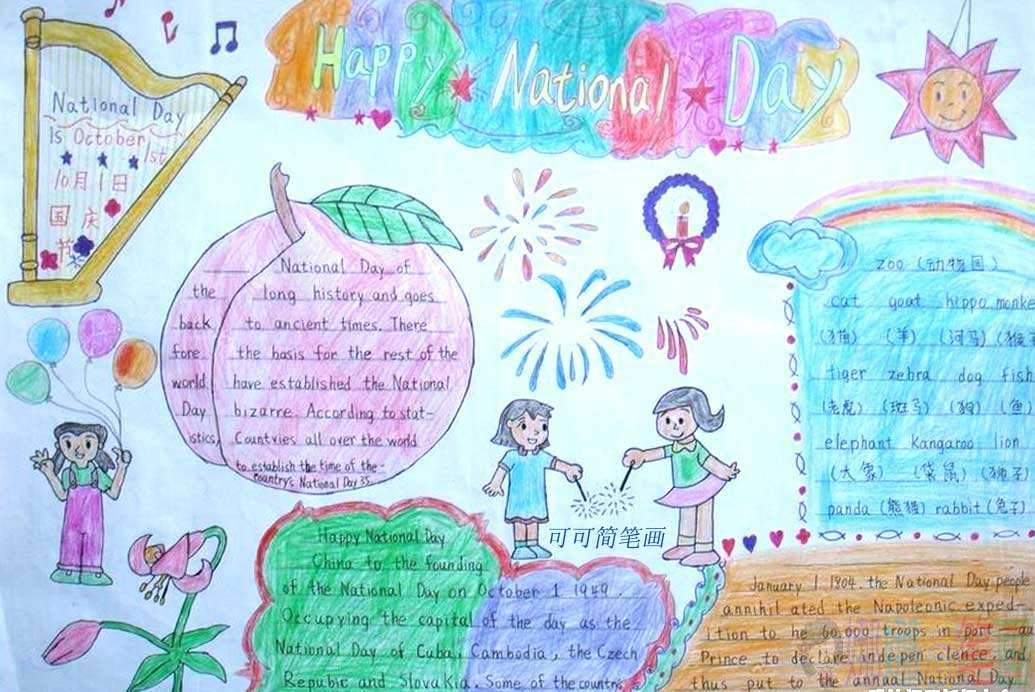 Happy National Day
National Day
is October
1st
10月1日
国庆
节
National Day of
the long history and goes
back to ancient times. There
fore the basis for the rest of the
world have established the National
Day bizarre. According to stat-
istics, Countries all over the world
to establish the time of the
country's National Day 35.
zoo (动物园)
cat goat hippo monke
(猫) (羊) (河马) (猴
tiger zebra dog fish
(老虎) (斑马) (狗) (鱼)
elephant kangaroo lion
(大象) (袋鼠) (狮子)
panda (熊猫) rabbit (兔子)
可可简笔画
Happy National Day
China to the founding
of the National Day on October 1 1949.
Occupying the capital of the day as the
National Day of Cuba, Cambodia, the Czech
Repubic and Slovakia. Some of the countr
January 1 1804. the National Day people
annihil ated the Napoleonic exped-
ition to he 60,000 troops in port-au
Prince to declare indepen clence, and
thus put to the annual National Day